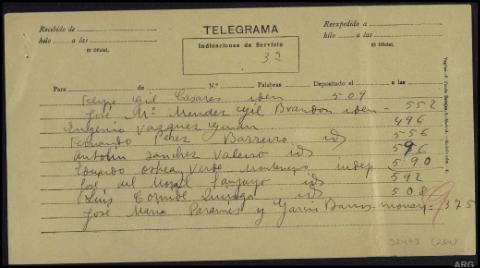 Recibido de
hilo a las
El Oficial,
TELEGRAMA
Indicaciones de Servicio
32
Reexpedido a
hilo a las
El Oficial,
Para de N.º Palabras Depositado el a las
Felipe Gil Casares iden 509
Jose Mª Mendez Gil Brandon iden - 552
Eugenio Vazquez Guman 496
Fernando Perez Barreiro id 556
Antolin Sanchez Valeiro id 596
Eduardo Verde Montenegro indep 590
Jose del id 592
Luis Cornide Quiroga id 508
Jose Maria Parames y Garcia Barros - monarq - 375
ARG